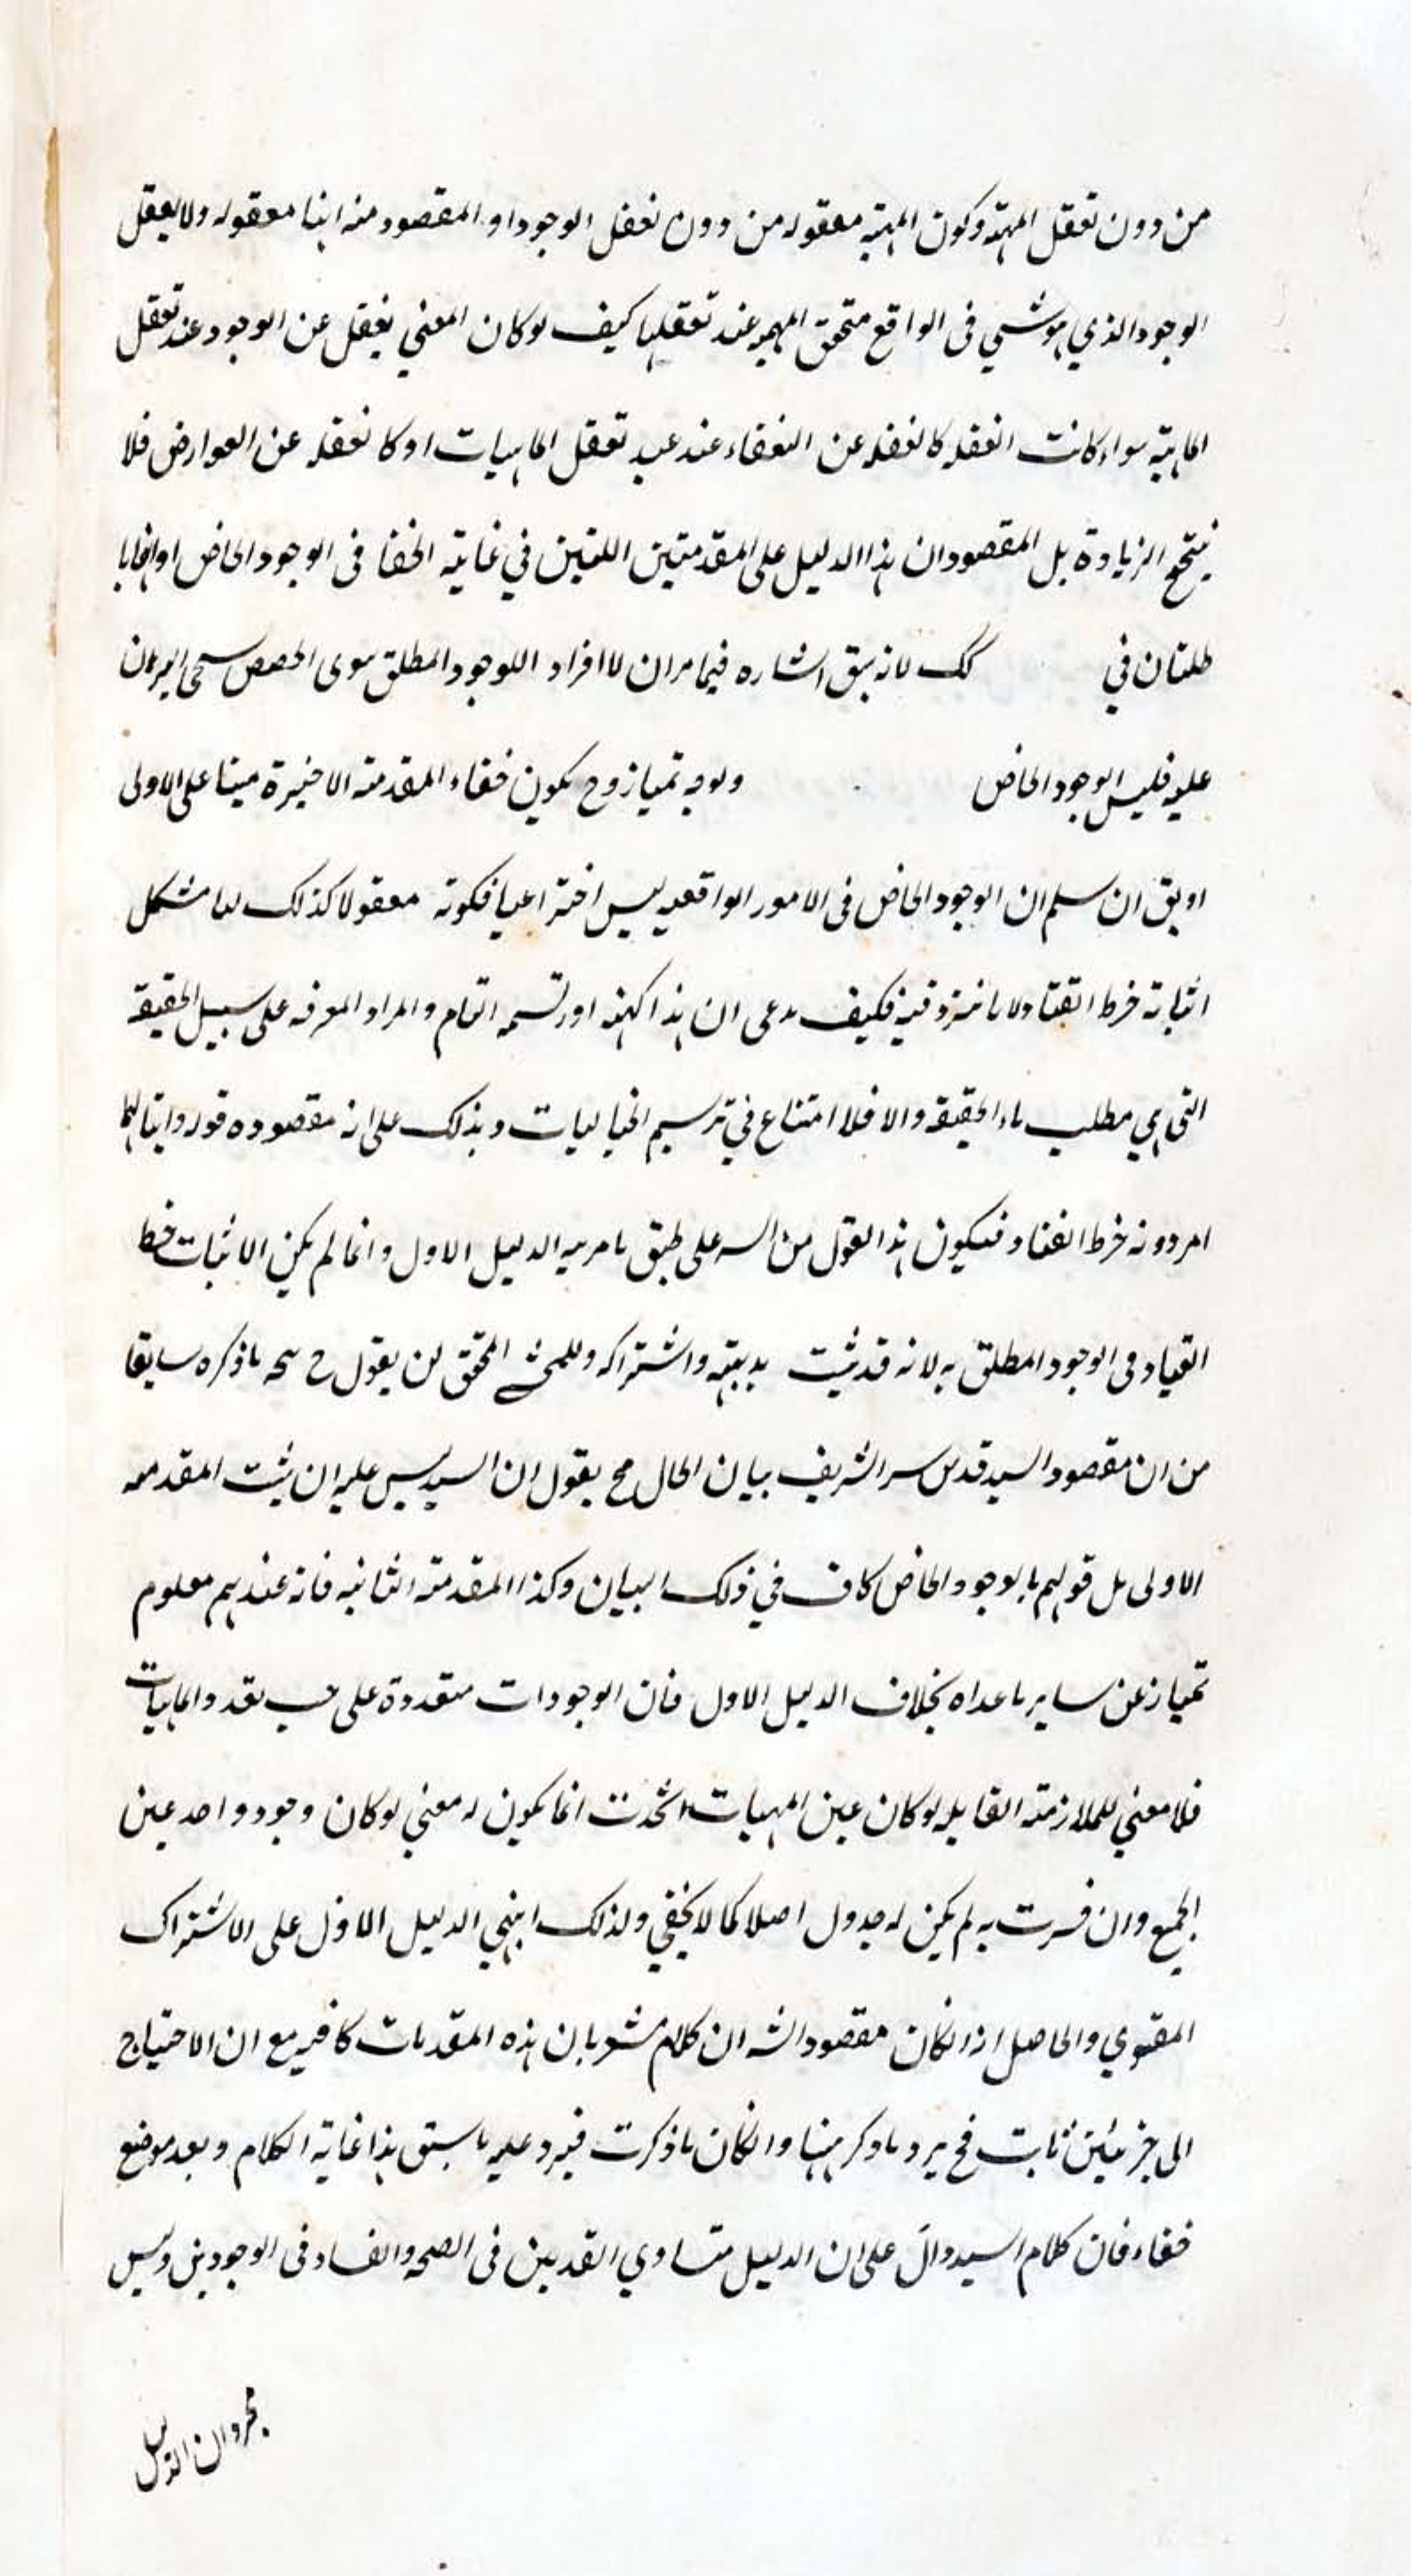 من دون تعقل المهية وكون المهية معقوله من دون تعقل الوجود او المقصود منه انها معقوله ولا يعقل
الوجود الذي هو شي في الواقع متحقق المهيه عند تعقلها كيف لو كان المعني يغفل عن الوجود عند تعقل
الماهية سواء كانت الغفله كالغفله عن العنقاء عند تعقل الماهيات او كالغفله عن العوارض فلا
ينتج الزيادة بل المقصود ان هذا الدليل على المقدمتين اللتين في غاية الخفا في الوجود الخاص او انها
طلتان في كك لانه سبق اشاره فيما مر ان لا افراد اللوجود المطلق سوى الحصص البرهان
عليه فليس الوجود الخاص ولوجه تميازوح يكون خفاء المقدمة الاخيرة مبينا على الاولى
اويق ان سلم ان الوجود الخاص في الامور الواقعيه ليس اختراعيا فكونه معقولا كذلك لنا مشكل
اثباته خرط القتاد فكيف يدعى ان هذا كنهه او رسمه التام والمراد المعرفه على سبيل الحقيقة
التي هي مطلب ماء الحقيقة والا فلا امتناع في ترسيم الخياليات وبذلك على انه مقصوده قوله واثباتهما
امر دونه خرط القتاد فيكون هذا القول من السيد على طبق ما مر به الدليل الاول وانما لم يكن الاثبات خط
القياد في الوجود المطلق به لانه قد ثبت بديهته واشتراكه وللمحشي المحقق لن يقول ح ما ذكره سابقا
من ان مقصود السيد قدس سر الشريف بيان الحال مح يقول ان السيد ليس عليه ان يثبت المقدمه
الاولى بل قولهم بالوجود الخاص كاف في ذلك البيان وكذا المقدمة الثانيه فانه عندهم معلوم
تمياز عن ساير ما عداه بخلاف الدليل الاول فان الوجودات متعددة على حسب تعدد الماهيات
فلا معني للملازمة القايله لو كان عين المهيات اتحدت انما يكون له معني لو كان وجود واحد عين
الجميع وان فسرت به لم يكن له جدول اصلا كما لا يخفي ولذلك ابتني الدليل الاول على الاشتراك
المقنوي والحاصل انه ان كان مقصود الشه ان كلام مشعر بان هذه المقدمات كافيه مع ان الاحتياج
الى جزئين ثابت فح يرد ما ذكر هنها وان كان ما ذكرت فيرد عليه ما سبق هذا غاية الكلام وبعد موضع
خفاء فان كلام السيد دالّ على ان الدليل متساوي القدمين في الصحه والفساد في الوجودين وليس